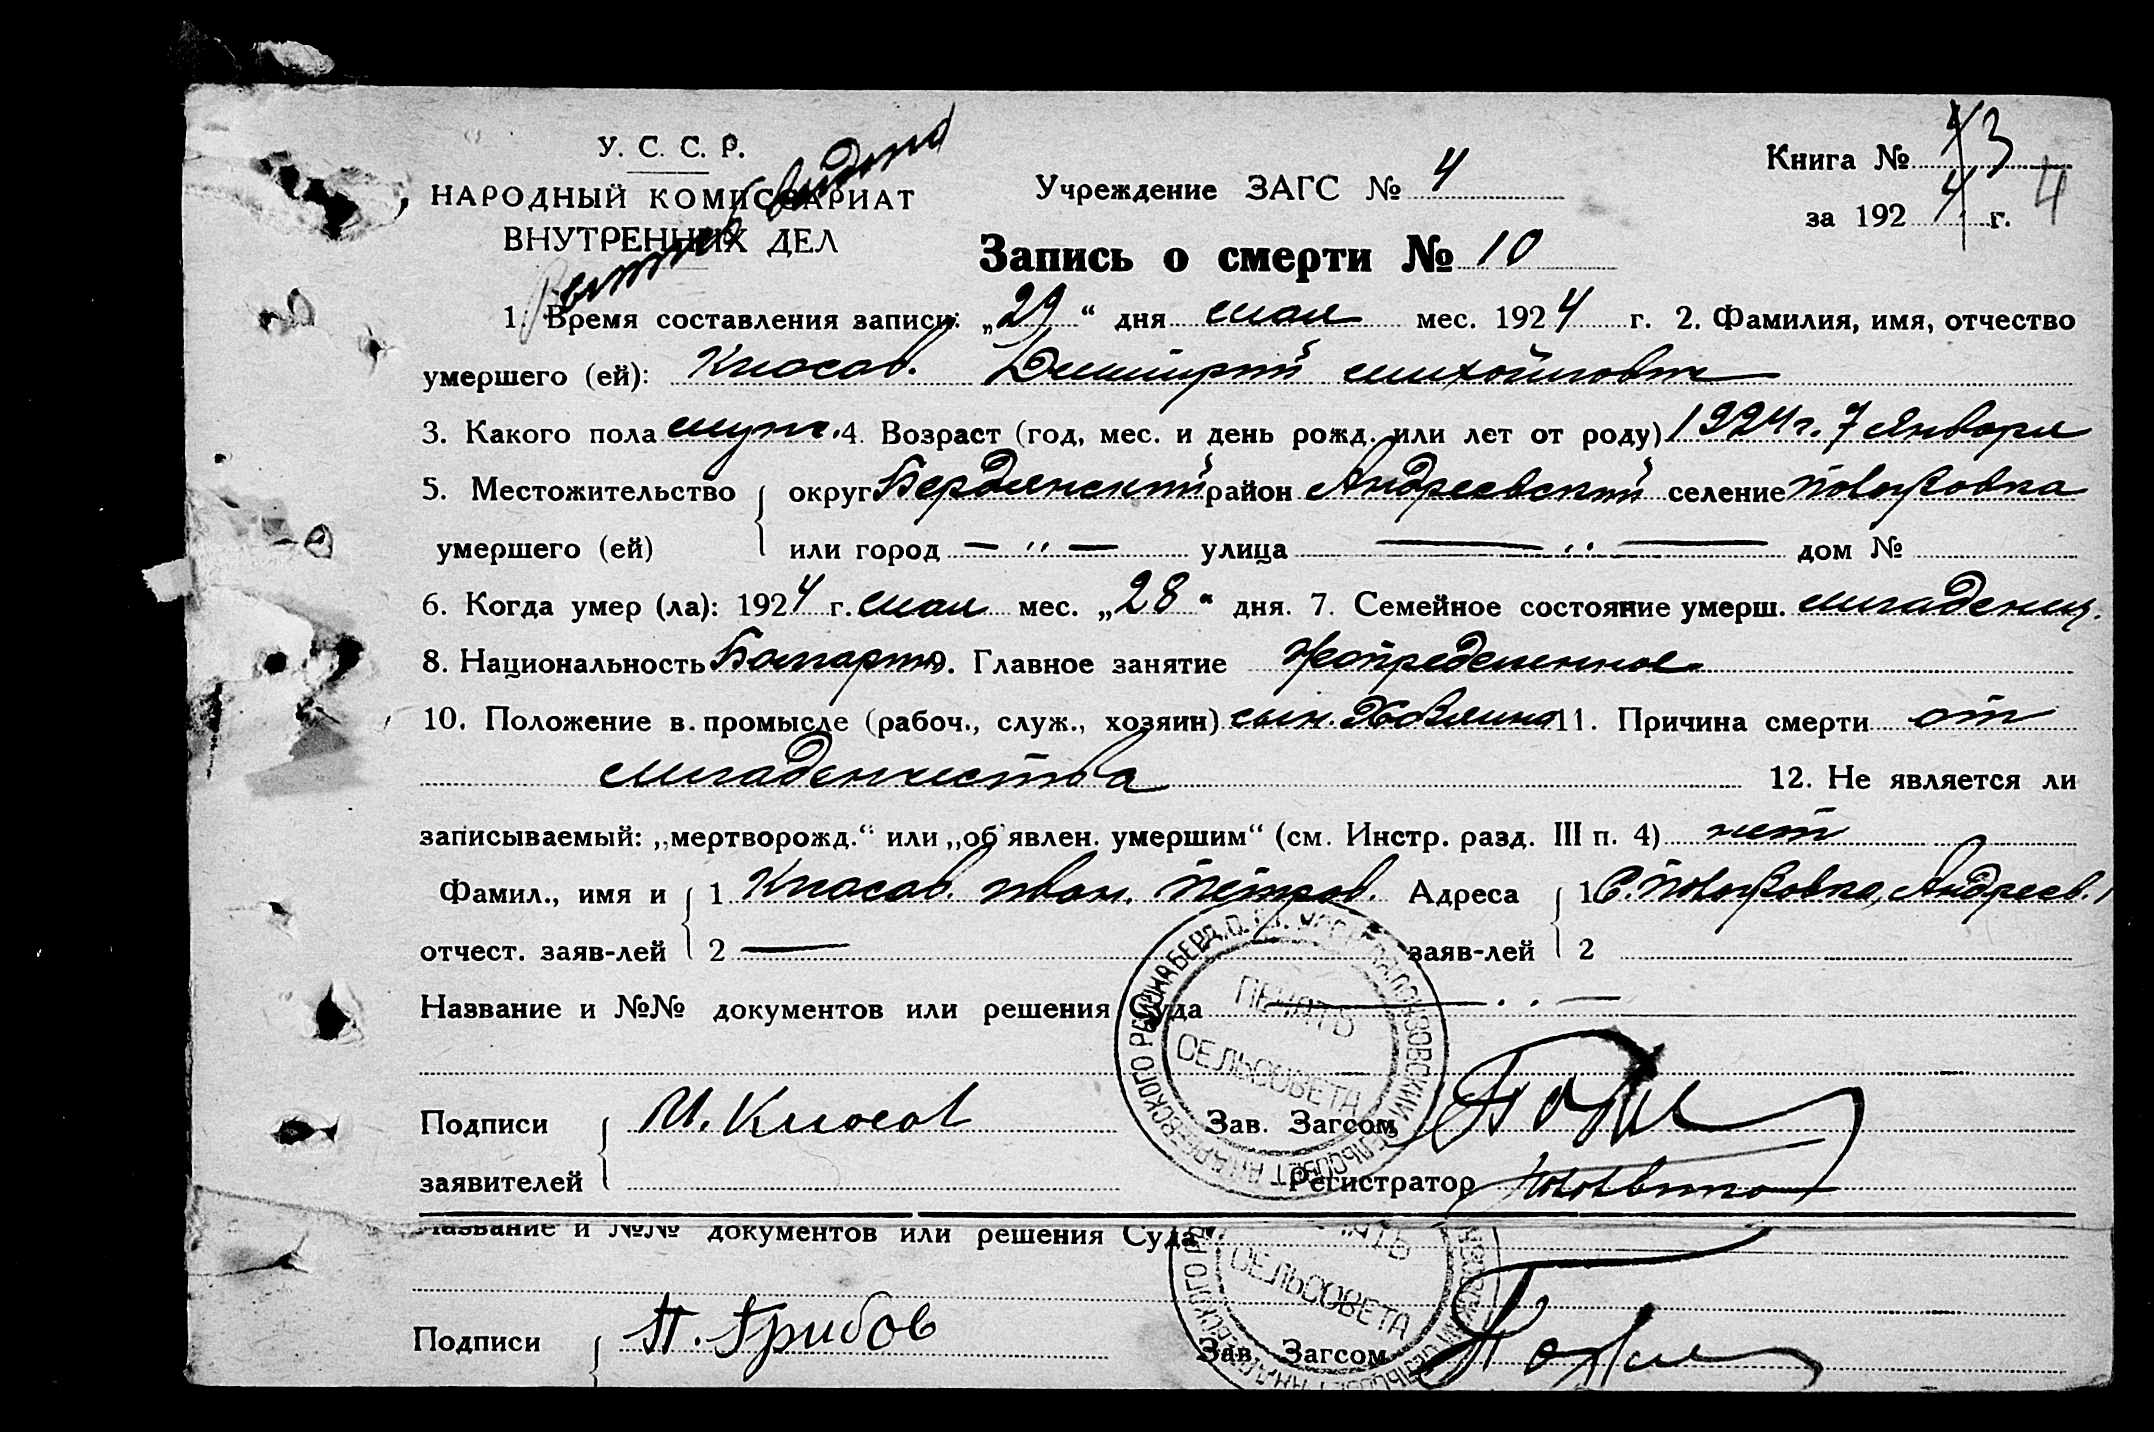 У. С. С. Р.
НАРОДНЫЙ КОМИССАРИАТ
ВНУТРЕННИХ ДЕЛ
Учреждение ЗАГС № 4
Книга № 3
за 192 4 г. 4
Запись о смерти № 10
1. Время составления записи: „29“ дня мая мес. 1924 г. 2. Фамилия, имя, отчество
умершего (ей): Клосов. Дмитрий михойлович
3. Какого пола муж. 4. Возраст (год, мес. и день рожд. или лет от роду) 1924 г. 7 Января
5. Местожительство округ Бердянский район Андреевский селение
умершего (ей) или город — " — улица — " — дом №
6. Когда умер (ла): 1924 г. мая мес. „28“ дня. 7. Семейное состояние умерш. младенец.
8. Национальность 9. Главное занятие
10. Положение в промысле (рабоч., служ., хозяин) сын. 11. Причина смерти от
младенчества 12. Не является ли
записываемый: „мертворожд.“ или „об'явлен. умершим“ (см. Инстр. разд. III п. 4) нет
Фамил., имя и 1 Клосов. иван. петров. Адреса 1 С. Андреев.
отчест. заяв-лей 2 — заяв-лей 2
Название и №№ документов или решения Суда
ПЕЧАТЬ
СЕЛЬСОВЕТА
Подписи И. Клосов Зав. Загсом
заявителей Регистратор
Название и №№ документов или решения Суда
СЕЛЬСОВЕТА
Подписи П. Грибов Зав. Загсом